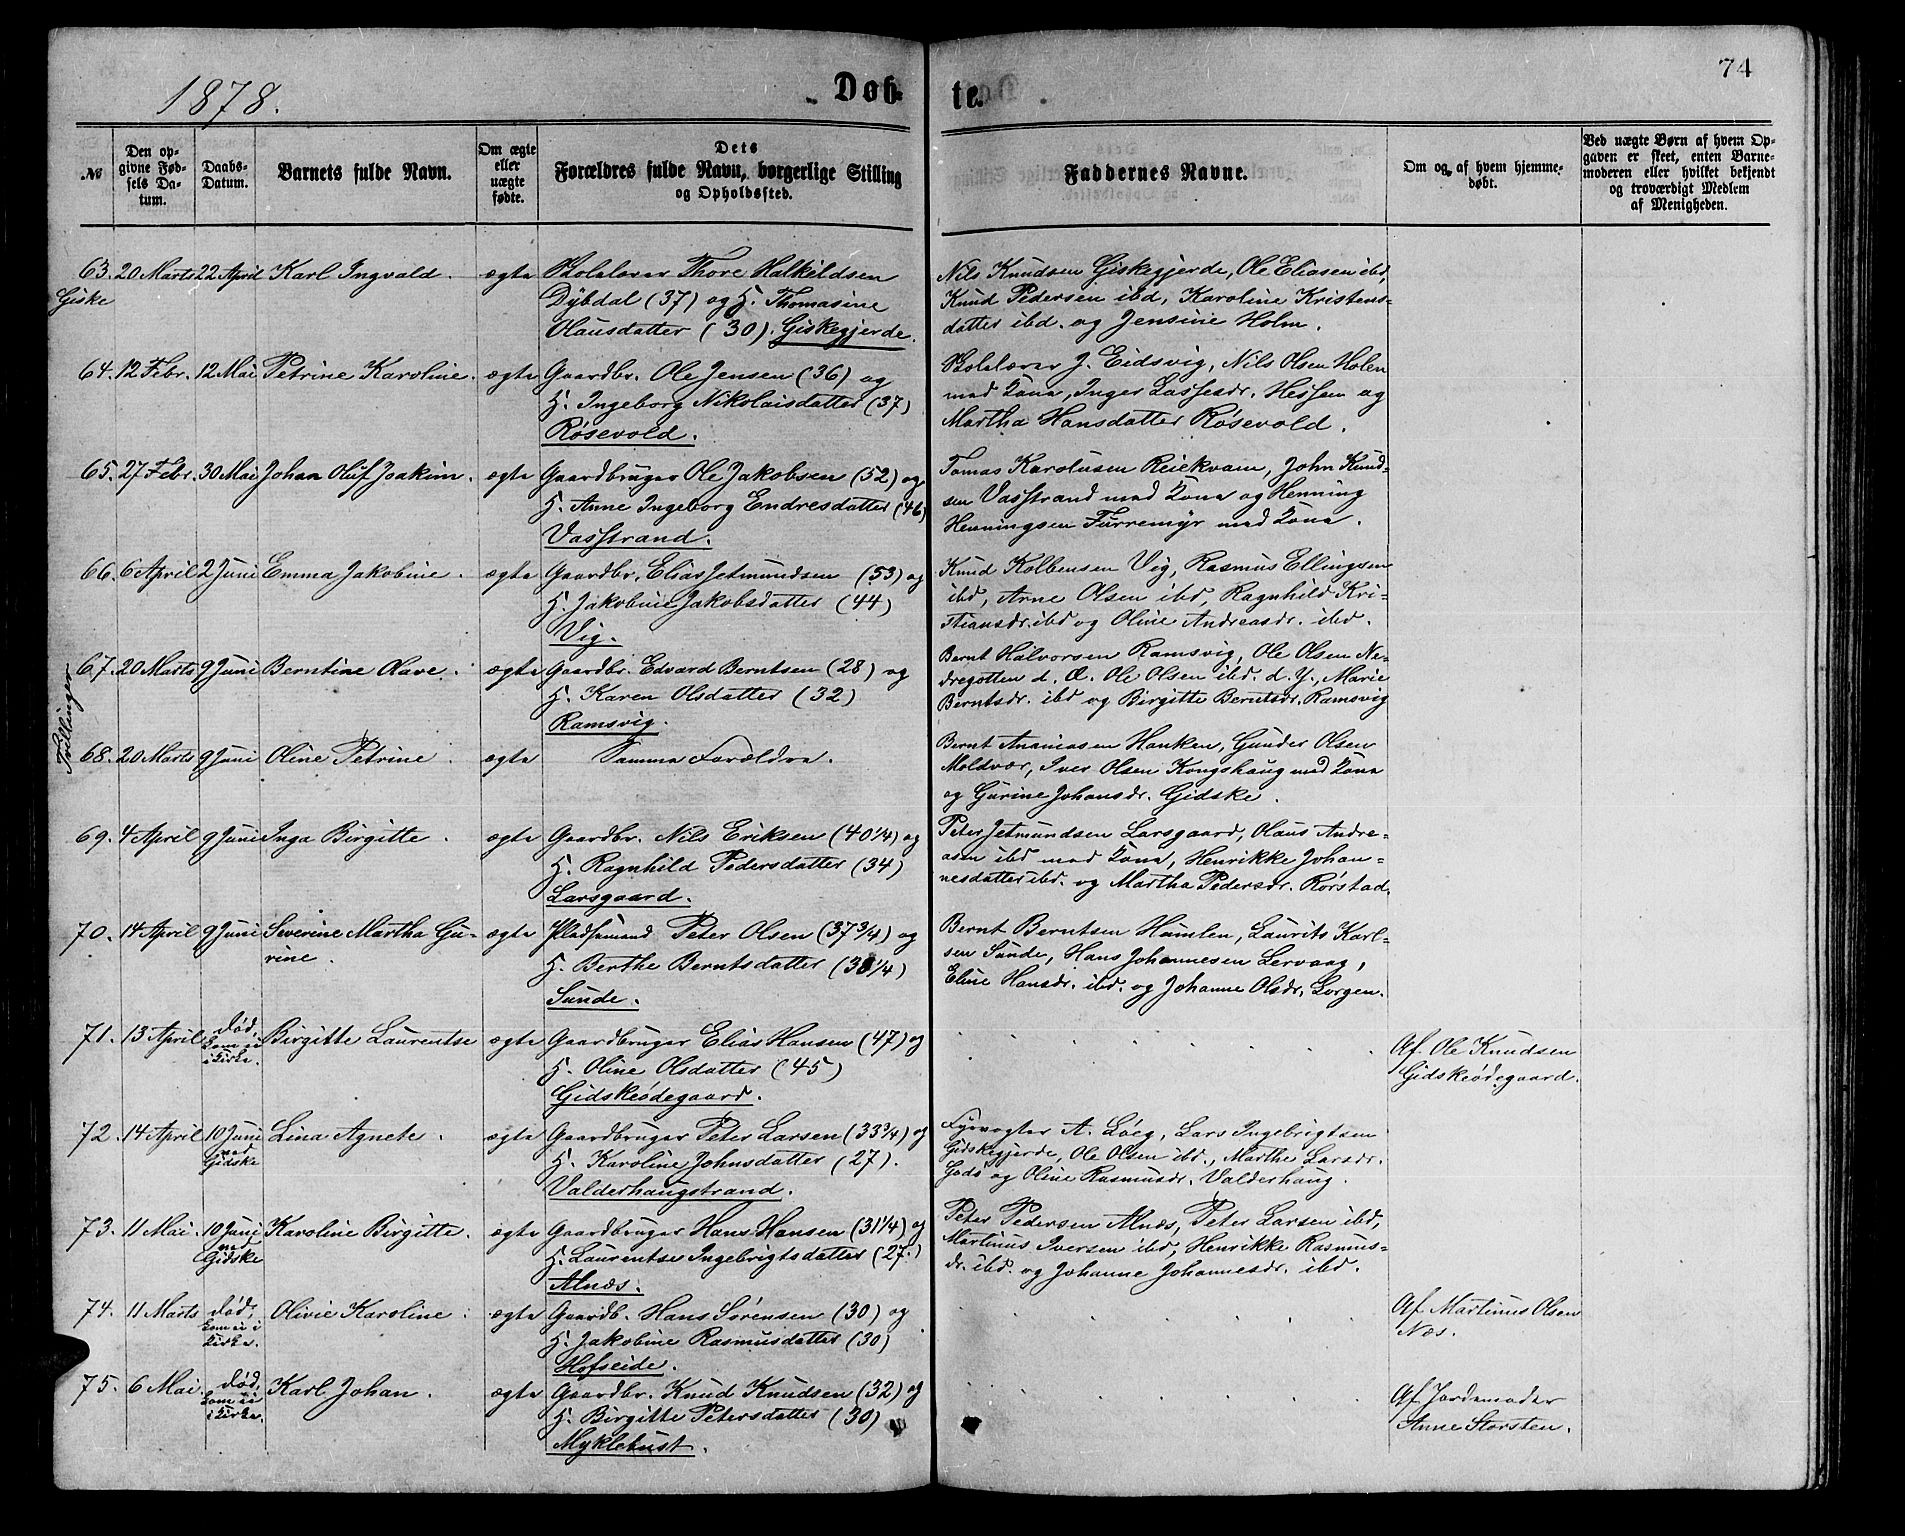 1878.
Døb-
te.
74
№
Den op-
givne Fød-
sels Da-
tum.
Daabs-
Datum.
Barnets fulde Navn.
Om ægte
eller
uægte
fødte.
Dets
Forældres fulde Navn, borgerlige Stilling
og Opholdssted.
Faddernes Navne.
Om og af hvem hjemme-
døbt.
Ved uægte Børn af hvem Op-
gaven er skeet, enten Barne-
moderen eller hvilket bekjendt
og troværdigt Medlem
af Menigheden.
63. 20 Marts 22 April Karl Ingvald. ægte Skolelærer Thore Halkildsen
Giske
Dybdal (37) og H. Thomasine
Olausdatter (30). Giskegjerde.
Nils Knudsen Giskegjerde, Ole Eliasen ibd,
Knud Pedersen ibd, Karoline Kristens-
datter ibd. og Jensine Holm.
64. 12 Febr. 12 Mai Petrine Karoline. ægte Gaardbr. Ole Jensen (36) og
H. Ingeborg Nikolaisdatter (37)
Røsevold.
Skolelærer J. Eidsvig, Nils Olsen Holen
med Kone, Inger Lassesdr. Hessen og
Martha Hansdatter Røsevold.
65. 27 Febr. 30 Mai Johan Oluf Joakim. ægte Gaardbruger Ole Jakobsen (52) og
H. Anne Ingeborg Endresdatter (46)
Vasstrand.
Tomas Karolusen Reiekvam, John Knud-
sen Vasstrand med Kone og Henning
Henningsen Furremyr med Kone.
66. 6 April 2 Juni Emma Jakobine. ægte Gaardbr. Elias Jetmundsen (53) og
H. Jakobine Jakobsdatter (44)
Vig.
Knud Kolbensen Vig, Rasmus Ellingsen
ibd, Arne Olsen ibd, Ragnhild Kri-
stiansdr. ibd og Oline Andreasdr. ibd.
Tvillinger
67. 20 Marts 9 Juni Berntine Olave. ægte Gaardbr. Edvard Berntsen (28) og
H. Karen Olsdatter (32)
Ramsvig.
Bernt Halvorsen Ramsvig, Ole Olsen Ne-
dregotten d. Æ. Ole Olsen ibd. d. Y., Marie
Berntsdr. ibd og Birgitte Berntsdr. Ramsvig
68. 20 Marts 9 Juni Oline Petrine. ægte Samme Forældre.
Bernt Ananiasen Hanken, Gunder Olsen
Moldvær, Iver Olsen Kongshaug med Kone
og Gurine Johansdr. Gidske.
69. 4 April 9 Juni Inga Birgitte. ægte Gaardbr. Nils Eriksen (40 1/4) og
H. Ragnhild Pedersdatter (34)
Larsgaard.
Peter Jetmundsen Larsgaard, Olaus Andre-
asen ibd med Kone, Henrikke Johan-
nesdatter ibd. og Martha Pedersdr. Rørstad.
70. 14 April 9 Juni Severine Martha Gu- ægte Pladsemand Peter Olsen (37 3/4) og
rine.
H. Berthe Berntsdatter (38 1/4)
Sunde.
Bernt Berntsen Humlen, Laurits Karl-
sen Sunde, Hans Johannesen Lervaag,
Eline Hansdr. ibd. og Johanne Olsdr. Lorgen.
71. 13 April død, Birgitte Laurentse ægte Gaardbruger Elias Hansen (47) og
kom ei
i Kirke.
H. Oline Olsdatter (45)
Gidskeødegaard.
Af Ole Knudsen
Gidskeødegaard.
72. 14 April 10 Juni Lina Agnete. ægte Gaardbruger Peter Larsen (33 3/4) og
ved
Gidske
H. Karoline Johnsdatter (27).
Valderhaugstrand.
Fyrvogter A. Löeg, Lars Ingebrigtsen
Gidskegjerde, Ole Olsen ibd., Marthe Larsdr.
Godø og Oline Rasmusdr. Valderhaug.
73. 11 Mai. 10 Juni Karoline Birgitte. ægte Gaardbruger Hans Hansen (31 1/4) og
ved
Gidske
H. Laurentse Ingebrigtsdatter (27.)
Alnæs.
Peter Pedersen Alnæs, Peter Larsen ibd,
Martinus Iversen ibd, Henrikke Rasmus-
dr. ibd. og Johanne Johannesdr. ibd.
74. 11 Marts død, Olivie Karoline. ægte Gaardb. Hans Sørensen (30) og
kom ei i
Kirke.
H. Jakobine Rasmusdatter (30)
Hofseide.
Af Martinus Olsen
Næs.
75. 6 Mai. død. Karl Johan. ægte Gaardbr. Knud Knudsen (32) og
kom ei
i Kirke.
H. Birgitte Petersdatter (30)
Myklebust.
Af Jordemoder
Anne Storsten.